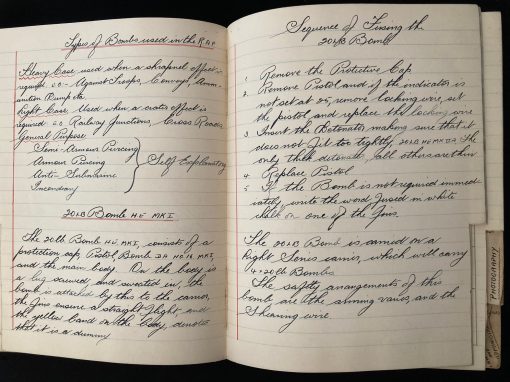 Types of Bombs used in the R.A.F
Heavy Case used when a shrapnel effect is
required e.g. Against Troops, Convoys, Amm-
unition Dumps etc.
Light Case. Used when a crater effect is
required e.g. Railway Junctions, Cross Roads
General Purpose
Semi-Armour Piercing
Armour Piercing
Anti-Submarine
Incendiary
Self Explanatory
20LB Bomb H.E MK I
The 20lb Bomb HE MKI, consists of a
protection cap, Pistol Bomb
and the main body. On the body is
a lug screwed and sweated in, the
bomb is attached by this to the carrier,
the fins ensure a straight flight and
the yellow band on the body, denotes
that it is a dummy
Sequence of Fusing the
20LB Bomb
1. Remove the Protective Cap
2. Remove Pistol and if the indicator is
not set at 25, remove locking wire, set
the pistol, and replace the locking wire
3. Insert the Detonator making sure that it
does not fit too tightly, 20LB HE The
only thick detonator, all others are thin
4. Replace Pistol
5. If the Bomb is not required immed-
iately, write the word fused in white
chalk on one of the fins.
The 20LB Bomb is carried on a
Light Series carrier, which will carry
4 20lb Bombs
The safety arrangements of this
bomb are the arming vanes, and the
Shearing wire.
PHOTOGRAPHY